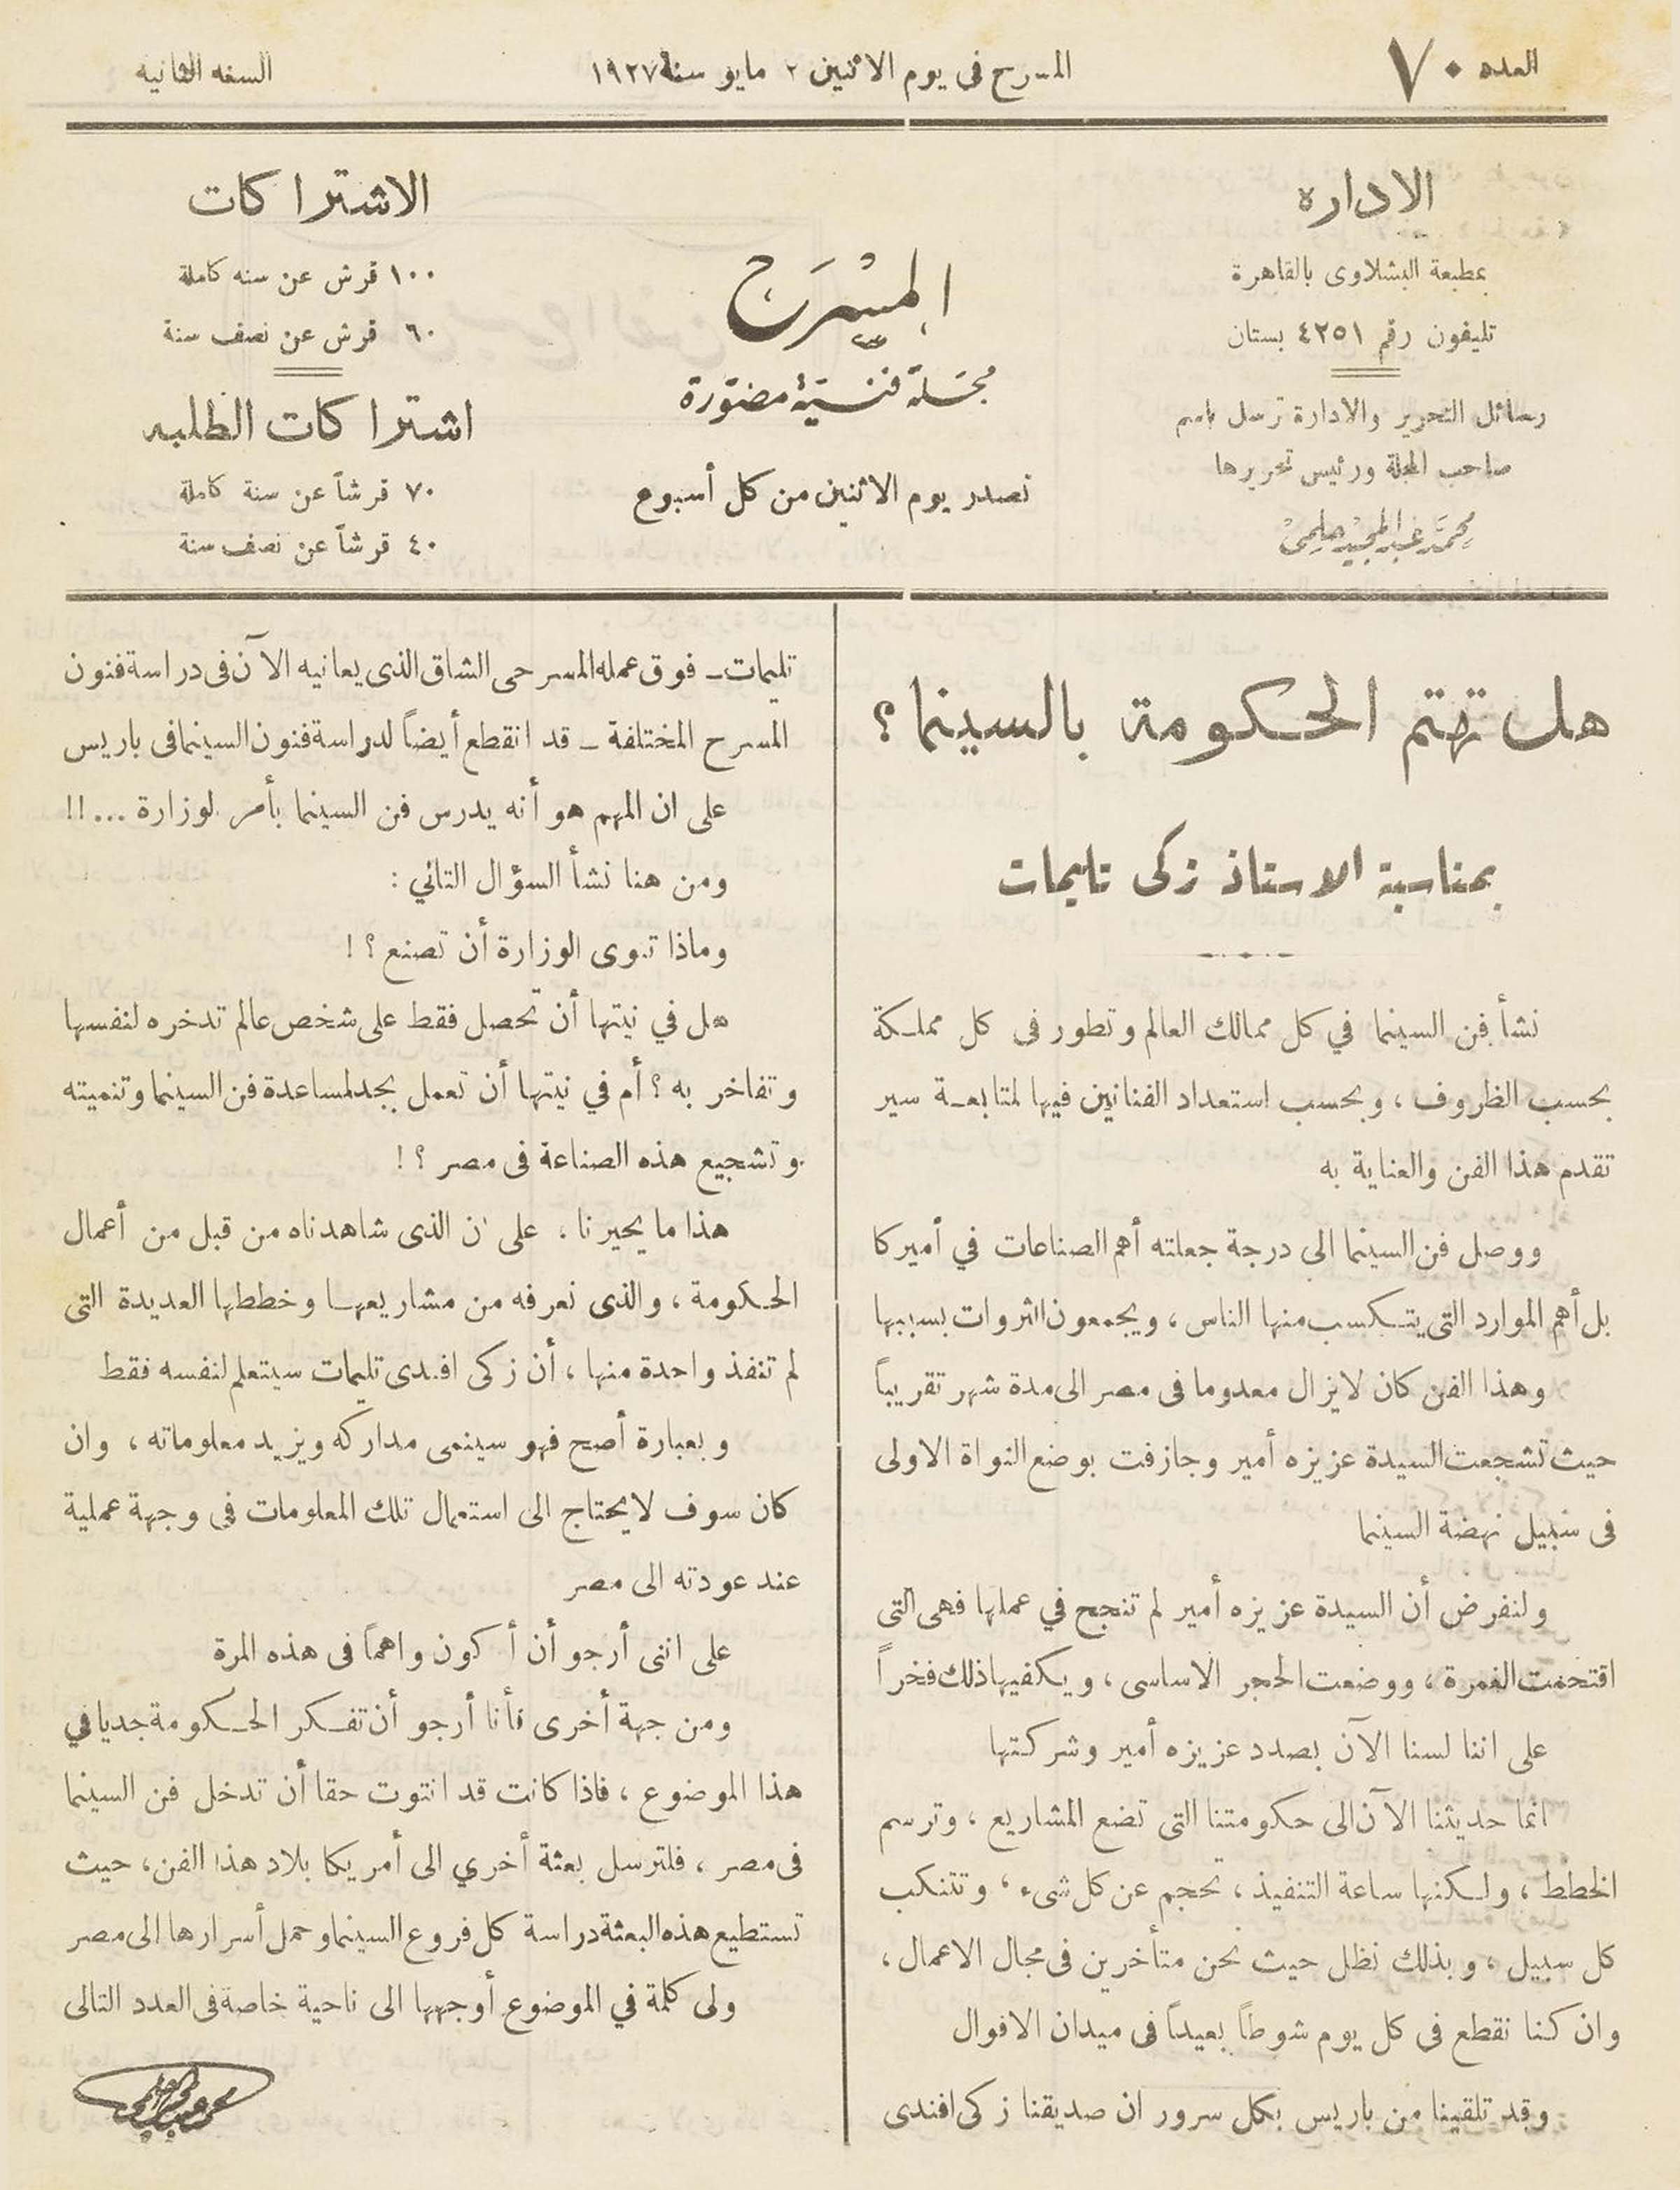 العدد ٧٠
المسرح فى يوم الاثنين ٢ مايو سنة ١٩٢٧
السنه الثانيه
الاداره
بمطبعة البشلاوى بالقاهرة
تليفون رقم ٤٢٥١ بستان
رسائل التحرير والادارة ترسل باسم
صاحب المجلة ورئيس تحريرها
محمد عبد المجيد حلمى
المسرح
مجلة فنية مصورة
تصدر يوم الاثنين من كل أسبوع
الاشتراكات
١٠٠ قرش عن سنه كاملة
٦٠ قرش عن نصف سنة
اشتراكات الطلبه
٧٠ قرشاً عن سنة كاملة
٤٠ قرشاً عن نصف سنة
هل تهتم الحكومة بالسينما ؟
بمناسبة الاستاذ زكى تليمات
نشأ فن السينما في كل ممالك العالم وتطور فى كل مملكة
بحسب الظروف ، وبحسب استعداد الفنانين فيها لمتابعة سير
تقدم هذا الفن والعناية به
ووصل فن السينما الى درجة جعلته أهم الصناعات في أميركا
بل أهم الموارد التى يتكسب منها الناس ، ويجمعون الثروات بسببها
وهذا الفن كان لايزال معدوما فى مصر الى مدة شهر تقريباً
حيث تشجعت السيدة عزيزه أمير وجازفت بوضع النواة الاولى
فى سبيل نهضة السينما
ولنفرض أن السيدة عزيزه أمير لم تنجح في عملها فهى التى
اقتحمت الغمرة ، ووضعت الحجر الاساسى ، ويكفيها ذلك فخراً
على اننا لسنا الآن بصدد عزيزه أمير وشركتها
انما حديثنا الآن الى حكومتنا التى تضع المشاريع ، وترسم
الخطط ، ولكنها ساعة التنفيذ ، تحجم عن كل شىء ، وتتنكب
كل سبيل ، وبذلك نظل حيث نحن متأخرين فى مجال الاعمال ،
وان كنا نقطع فى كل يوم شوطاً بعيداً فى ميدان الاقوال
وقد تلقينا من باريس بكل سرور ان صديقنا زكى افندى
تليمات ـ فوق عمله المسرحى الشاق الذى يعانيه الآن فى دراسة فنون
المسرح المختلفة ـ قد انقطع أيضاً لدراسة فنون السينما فى باريس
على ان المهم هو أنه يدرس فن السينما بأمر لوزارة ... !!
ومن هنا نشأ السؤال التاني :
وماذا تنوى الوزارة أن تصنع ؟ !
هل في نيتها أن تحصل فقط على شخص عالم تدخره لنفسها
وتفاخر به ؟ أم في نيتها أن تعمل بجد لمساعدة فن السينما وتنميته
وتشجيع هذه الصناعة فى مصر ؟ !
هذا ما يحيرنا ، على ان الذى شاهدناه من قبل من أعمال
الحكومة ، والذى نعرفه من مشاريعها وخططها العديدة التى
لم تنفذ واحدة منها ، أن زكى افندى تليمات سيتعلم لنفسه فقط
وبعبارة أصح فهو سينمى مداركه ويزيد معلوماته ، وان
كان سوف لايحتاج الى استعمال تلك المعلومات فى وجهة عملية
عند عودته الى مصر
على اننى أرجو أن أكون واهماً فى هذه المرة
ومن جهة أخرى فأنا أرجو أن تفكر الحكومة جديا في
هذا الموضوع ، فاذا كانت قد انتوت حقا أن تدخل فن السينما
فى مصر ، فلترسل بعثة أخري الى أمريكا بلاد هذا الفن ، حيث
تستطيع هذه البعثة دراسة كل فروع السينما وحمل أسرارها الى مصر
ولى كلمة في الموضوع أوجهها الى ناحية خاصة فى العدد التالى
محمد عبد المجيد حلمى